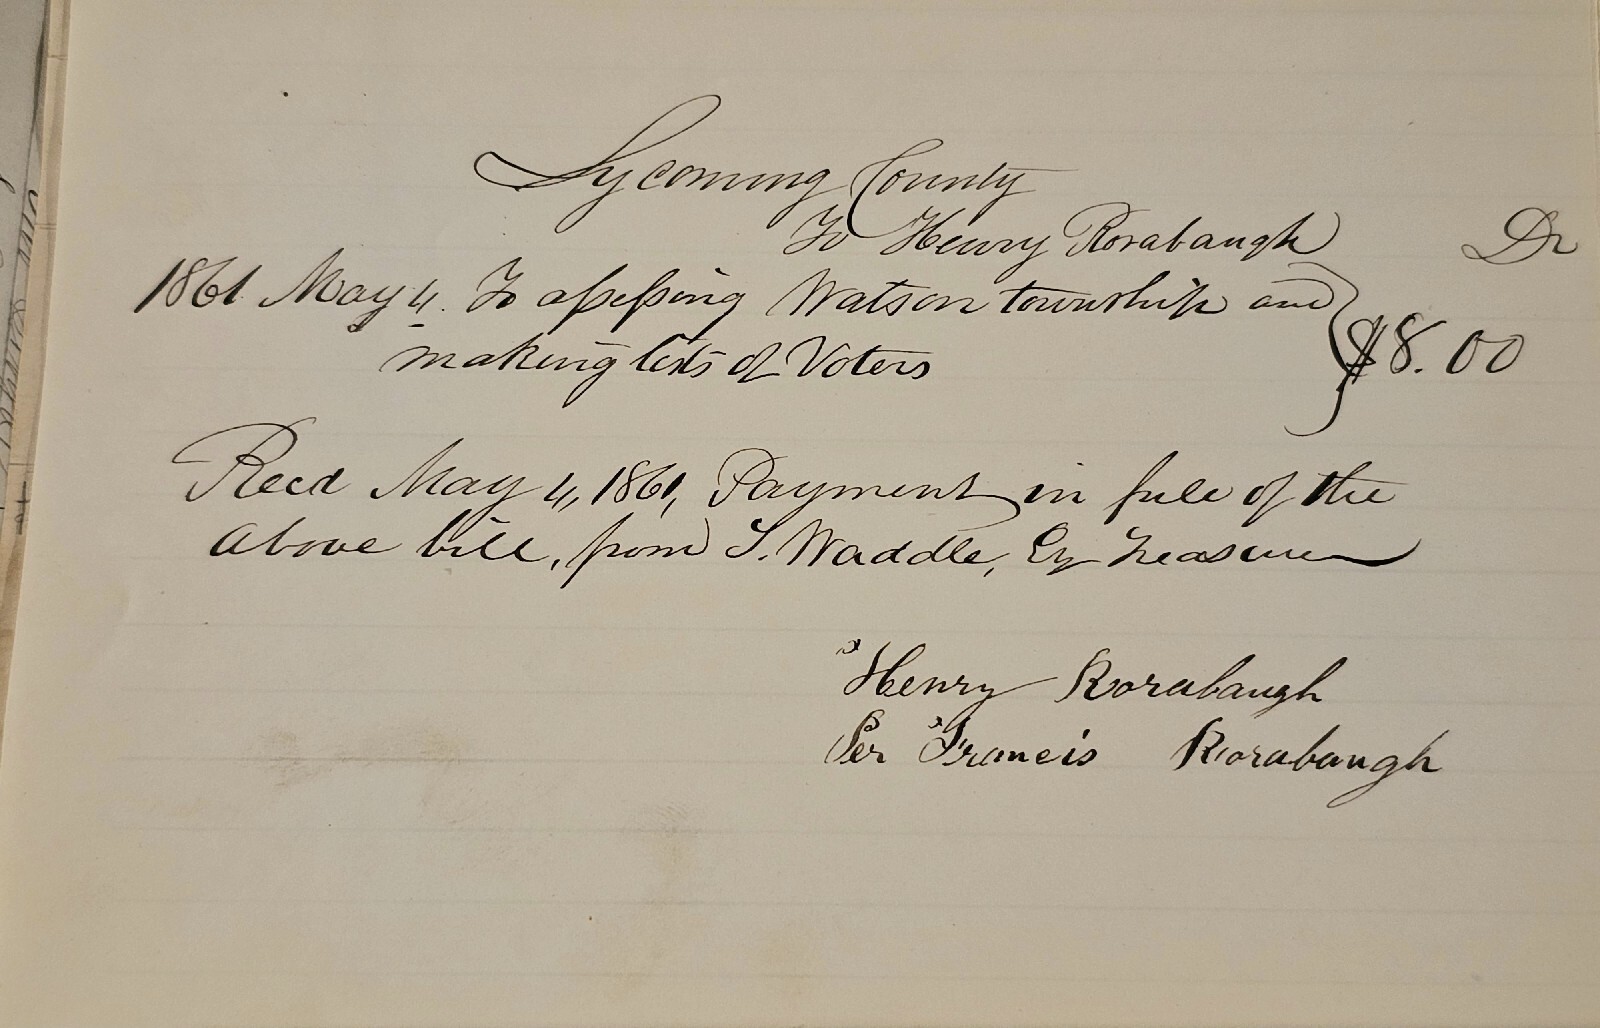 Lycoming County
To Henry Rorabaugh Dr
1861 May 4. To assessing Watson township and
making lists of Voters $8.00
Recd May 4, 1861, Payment in full of the
above bill, from S. Waddle, Cy Treasurer
Henry Rorabaugh
Per Francis Rorabaugh